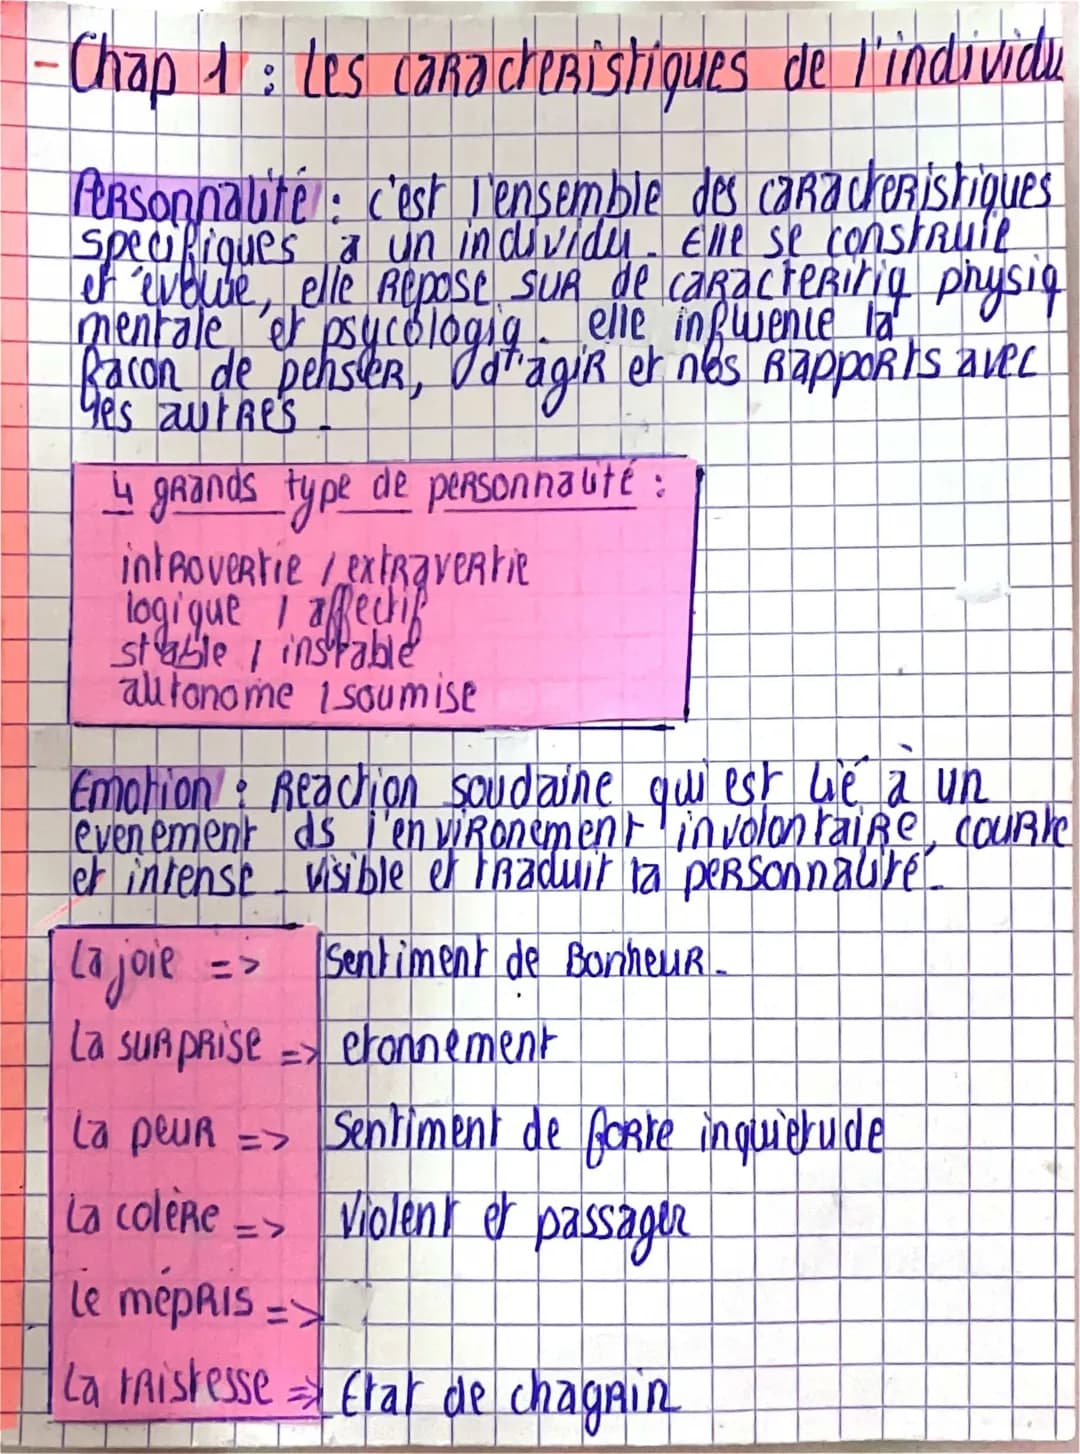 - Chap 1 : Les caracteristiques de l'individu
Personnalité : c'est l'ensemble des caracteristiques
specifiques a un individu. Elle se construie
et évolue, elle repose sur de caracteritiq physiq
mentale et psycologiq. elle influence la
facon de penser, d'agir et nos rapports avec
les autres.
4 grands type de personnalité :
introvertie / extravertie
logique / affectif
stable / instable
autonome / soumise
Emotion : Reaction soudaine qui est lié à un
evenement ds l'environement involontaire, courte
et intense - visible et traduit ta personnalité.
La joie => Sentiment de Bonheur.
La surprise => etonnement
La peur => Sentiment de forte inquiètude
La colère => Violent et passager
Le mépris =>
La tristesse => Etat de chagrin